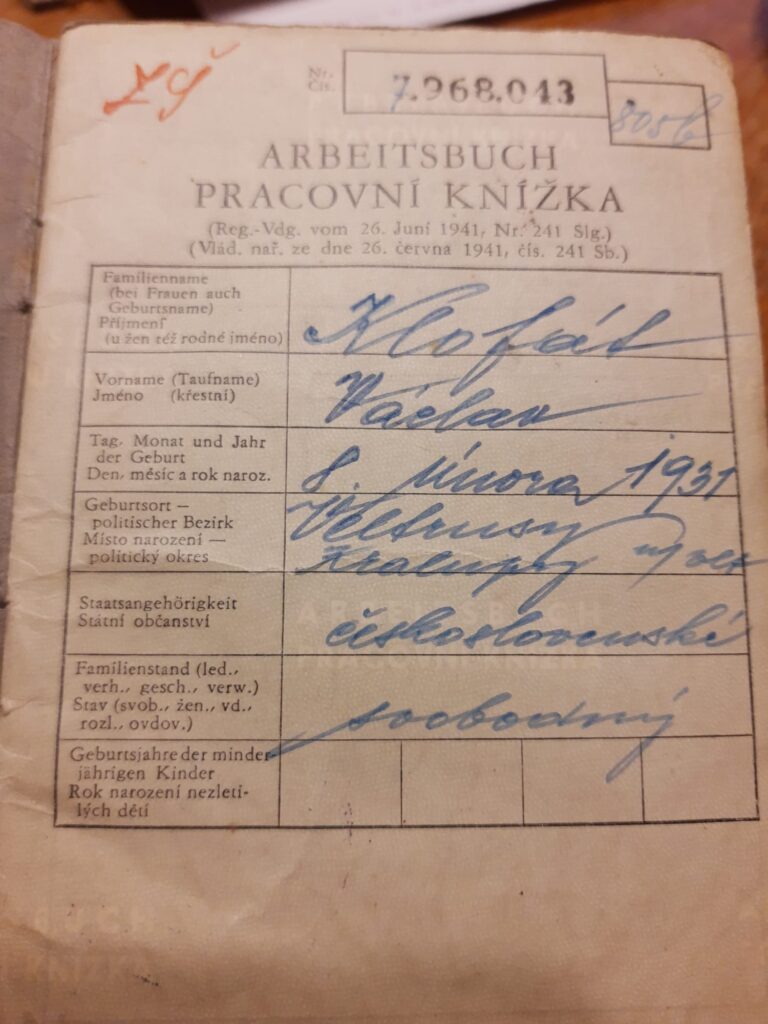 Nr.
Čís.
7.968.043
805b
ARBEITSBUCH
PRACOVNÍ KNÍŽKA
(Reg.-Vdg. vom 26. Juni 1941, Nr. 241 Slg.)
(Vlád. nař. ze dne 26. června 1941, čís. 241 Sb.)
Familienname
(bei Frauen auch
Geburtsname)
Příjmení
(u žen též rodné jméno)
Klofát
Vorname (Taufname)
Jméno (křestní)
Václav
Tag, Monat und Jahr
der Geburt
Den, měsíc a rok naroz.
8. února 1931
Geburtsort —
politischer Bezirk
Místo narození —
politický okres
Veltrusy
Kralupy
Staatsangehörigkeit
Státní občanství
československé
Familienstand (led.,
verh., gesch., verw.)
Stav (svob., žen., vd.,
rozl., ovdov.)
svobodný
Geburtsjahre der minder-
jährigen Kinder
Rok narození nezleti-
lých dětí